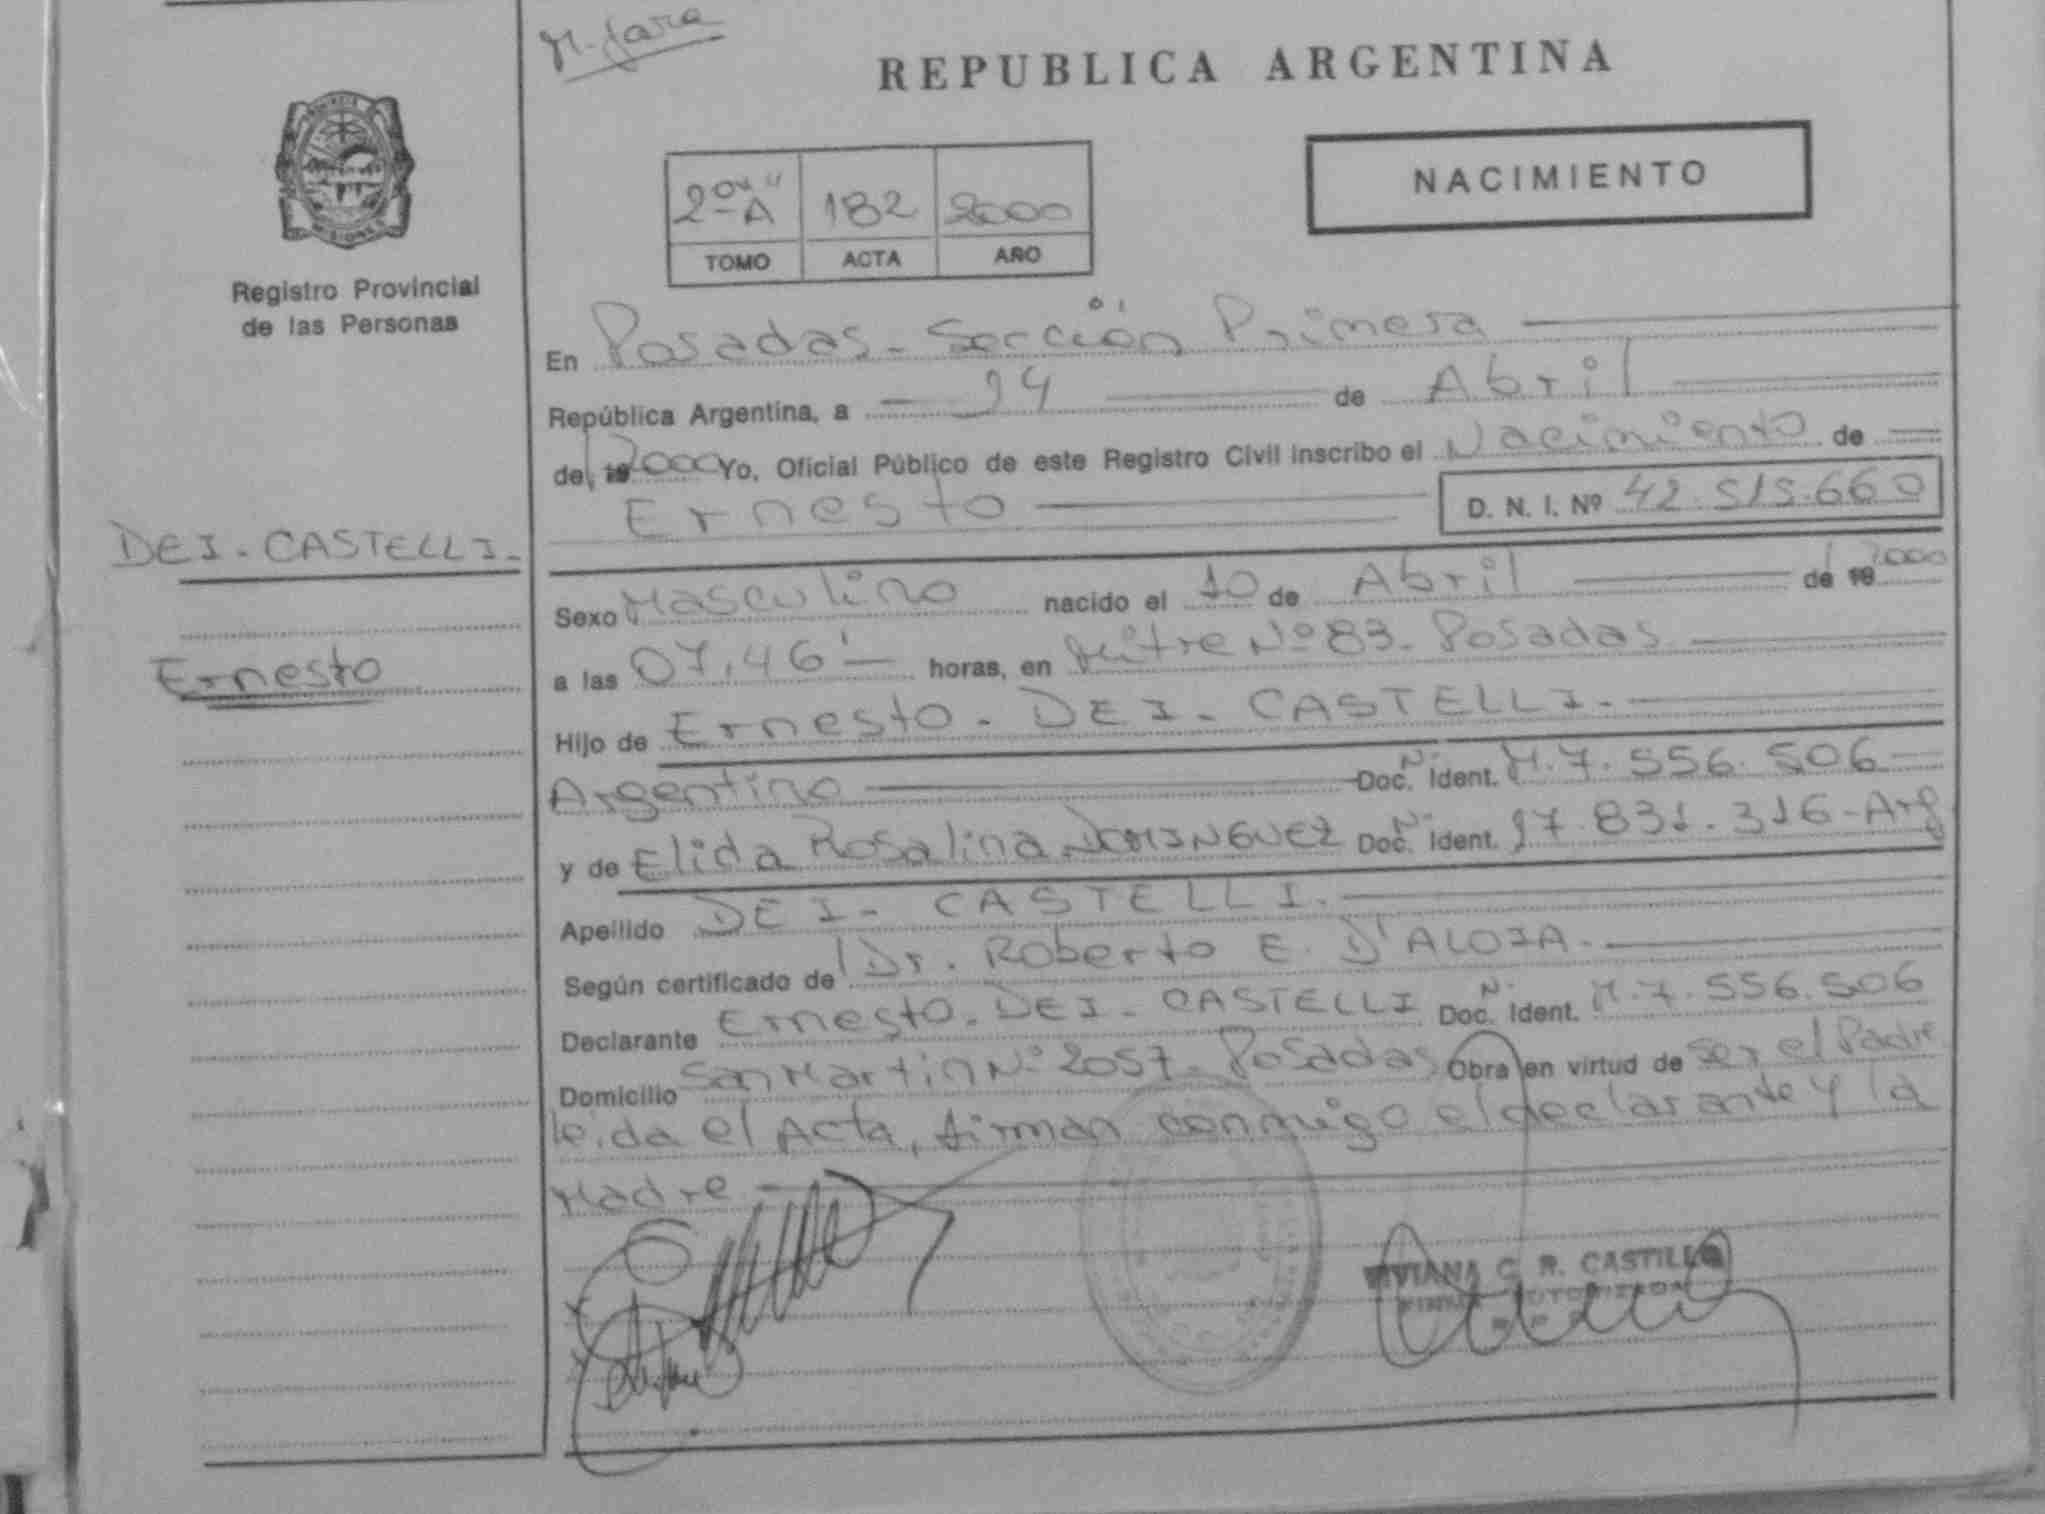 M. Jara
REPUBLICA ARGENTINA
NACIMIENTO
2º "A" 182 2000
TOMO ACTA AÑO
Registro Provincial
de las Personas
DEI-CASTELLI-
Ernesto
En Posadas-Sección Primera
República Argentina, a 14 de Abril
de 2000 Yo, Oficial Público de este Registro Civil inscribo el Nacimiento de
Ernesto D. N. I. Nº 42.515.660
Sexo Masculino nacido el 10 de Abril de 2000
a las 07,46' horas, en Mitre Nº 83-Posadas
Hijo de Ernesto-DEI-CASTELLI.
Argentino Doc. Ident. M.7.556.506
y de Elida Rosalina DOMINGUEZ Doc. Ident. 17.831.316-Arg
Apellido DEI-CASTELLI.
Según certificado de Dr. Roberto E. D'ALOIA.
Declarante Ernesto-DEI-CASTELLI Doc. Ident. M.7.556.506
Domicilio San Martin Nº 2057-Posadas Obra en virtud de ser el Padre
leida el Acta, firman conmigo el declarante y la
Madre
VIVIANA C. R. CASTILLO
FIRMA AUTORIZADA